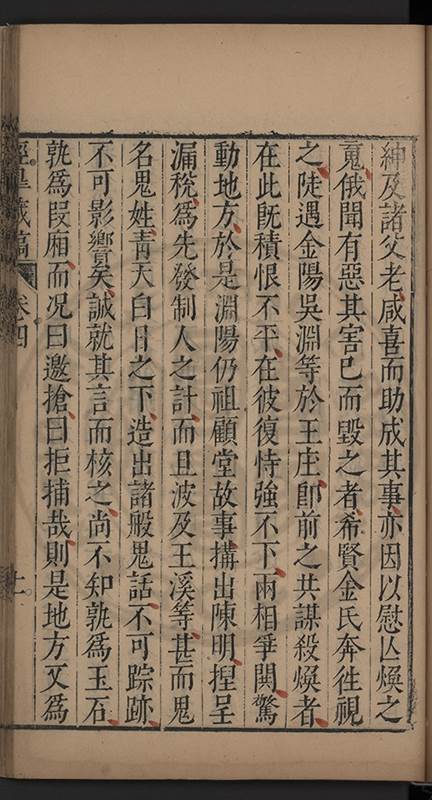 紳及諸父老咸喜而助成其事亦因以慰亾煥之
㝠俄聞有惡其害已而毀之者希賢金氏奔徃視
之陡遇金陽吳淵等於王庄卽前之共謀殺煥者
在此旣積恨不平在彼復恃強不下兩相爭鬨驚
動地方於是淵陽仍祖顧堂故事搆出陳明捏呈
漏稅爲先發制人之計而且波及王溪等甚而鬼
名鬼姓青天白日之下造出諸般鬼話不可踪跡
不可影響矣誠就其言而核之尚不知孰爲玉石
孰爲叚廂而况曰邀搶曰拒捕哉則是地方又爲
卷四
十一